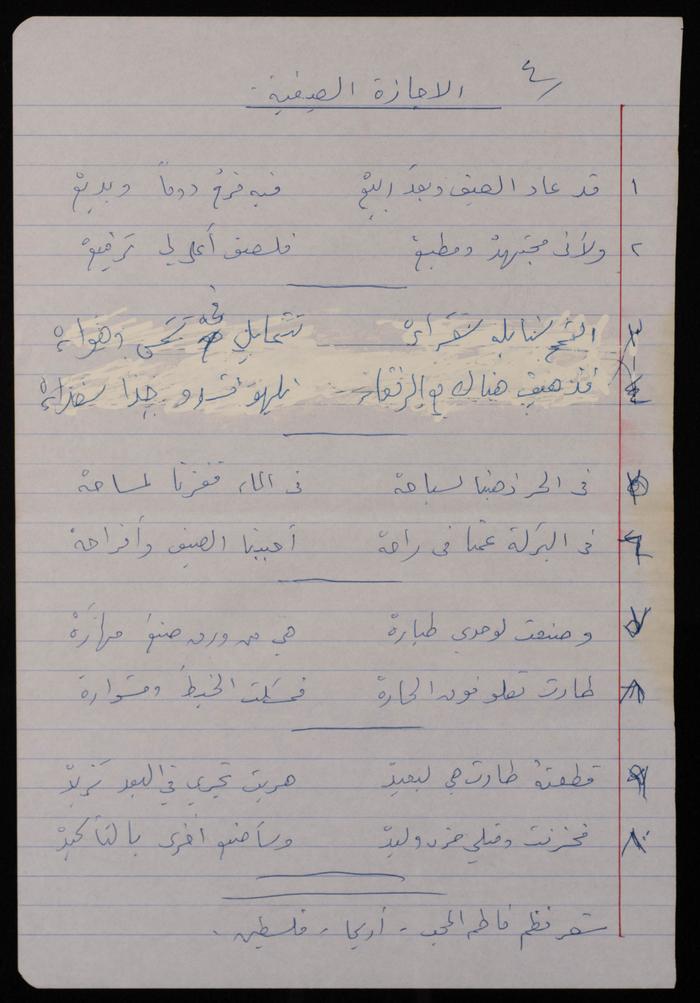 ٤
الاجازة الصيفية
١ قد عاد الصيف وبعدَ ربيعْ فيه فرحٌ دوماً وبديعْ
٢ ولأني مجتهدٌ ومطيعْ فلصفٍ أعلى لي ترفيعْ
٣ القمح سنابله شقراءْ تتمايل في وهواءْ
٤ هناك مع الرفقاء نلهو جداً سعداءْ
في الحر ذهبنا لسباحة في الماء قفزنا لمساحة
٦ في البركة عمنا في راحة أحببنا الصيف وأفراحهْ
٧ وصنعت لوحدي طيارة هي من ورق صنعُ مهارَةْ
٨ طارت تعلو فوق الحارة فمسكت الخيطَ
٩ قطعتهُ طارت هي لبعيدْ هربت تجري في البعد تزيدْ
١٠ فحزنت وقلبي حزن وليدْ وسأصنع أخرى بالتأكيدْ
شعر نظم فاطم المحب - أريحا - فلسطين .